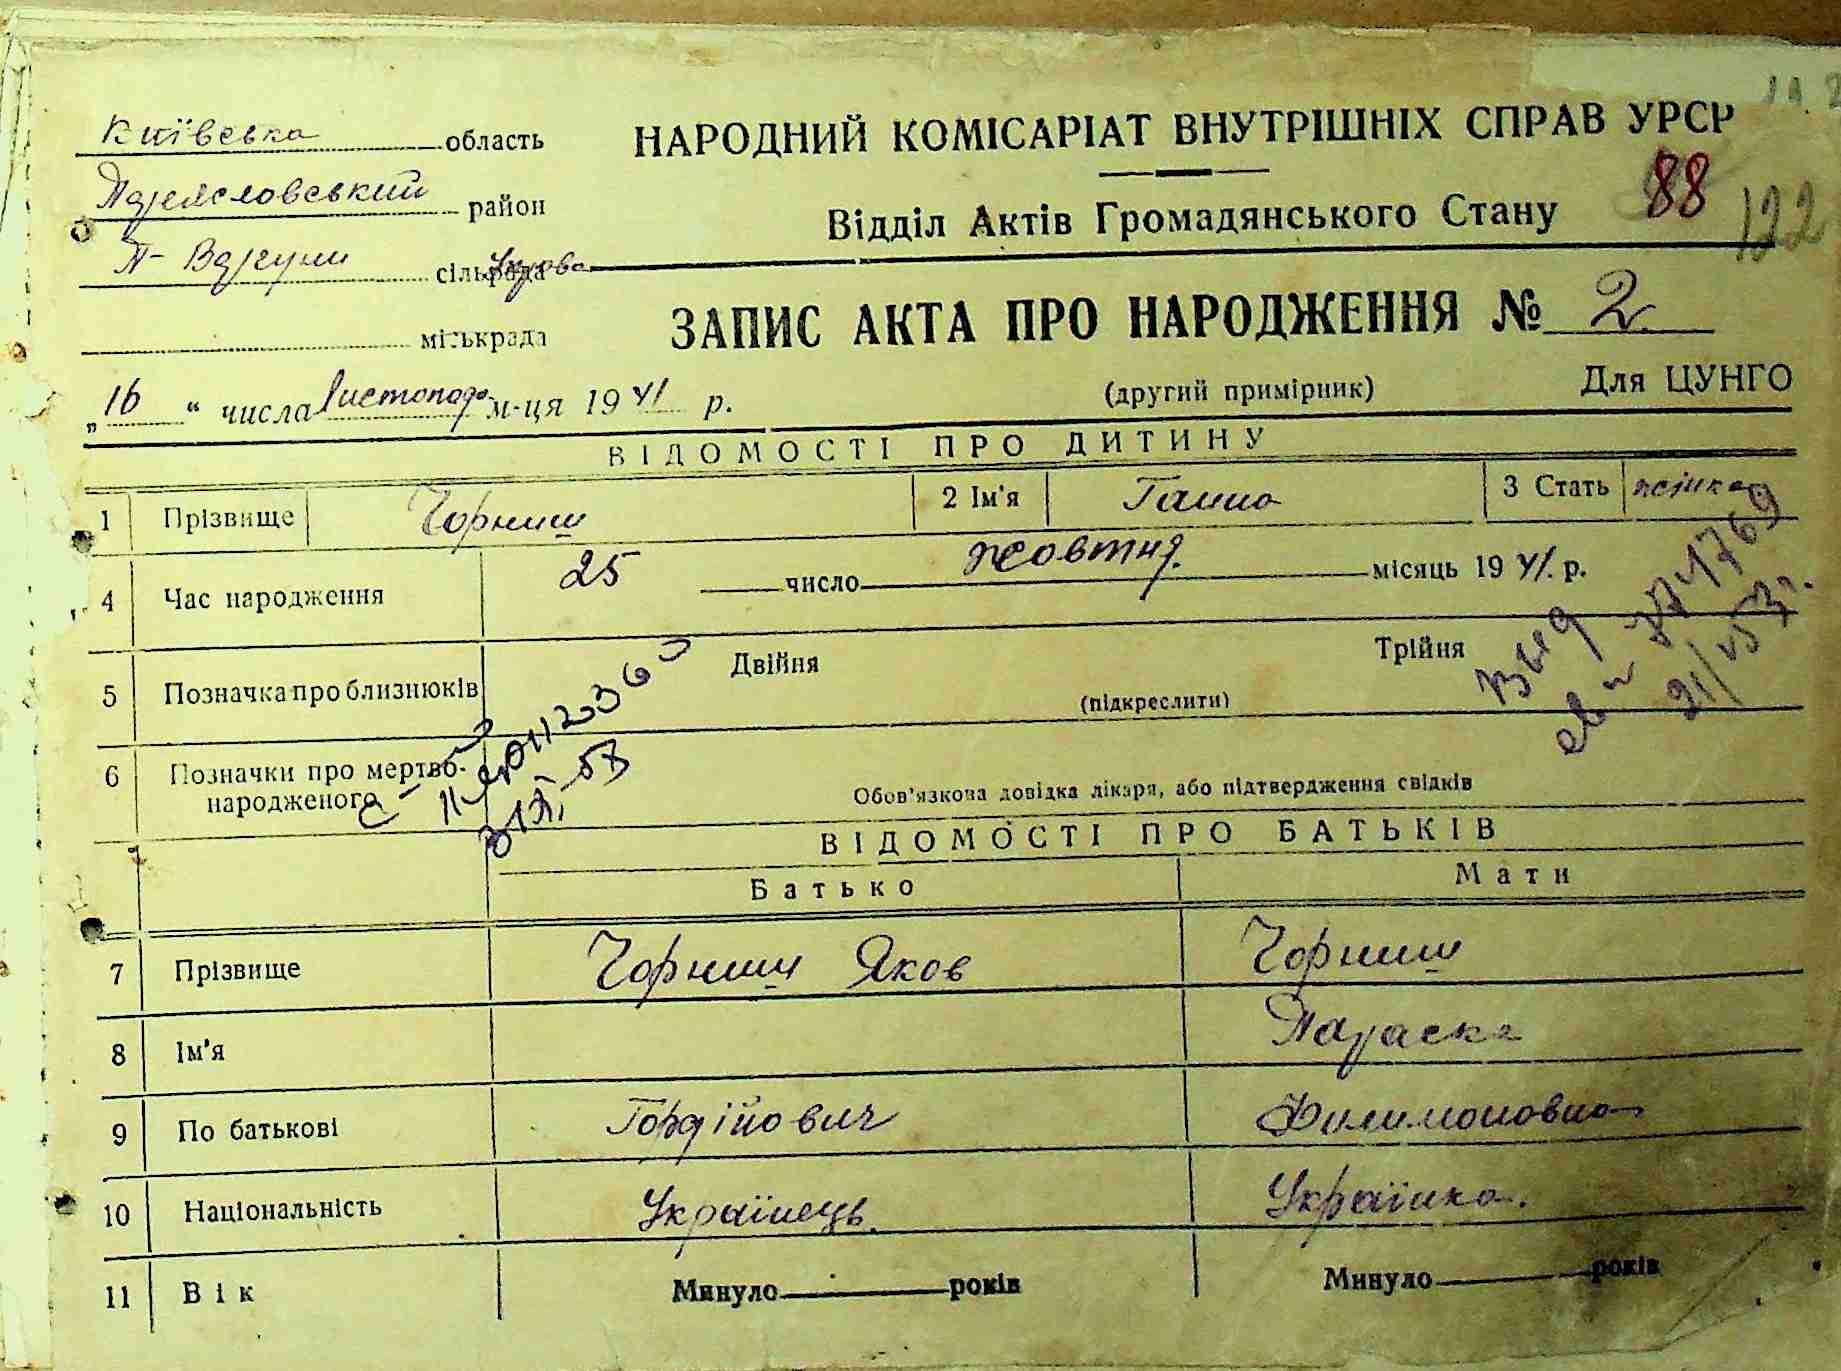 Київська область
НАРОДНИЙ КОМІСАРІАТ ВНУТРІШНІХ СПРАВ УРСР
Переяславський район
88
122
Відділ Актів Громадянського Стану
сільрада
ЗАПИС АКТА ПРО НАРОДЖЕННЯ № 2
міськрада
„16“ числа Листопада м-ця 1941 р.
(другий примірник)
Для ЦУНГО
ВІДОМОСТІ ПРО ДИТИНУ
1 Прізвище Чорниш 2 Ім'я Ганна 3 Стать жінка
4 Час народження 25 число жовтня місяць 1941. р.
5 Позначка про близнюків Двійня Трійня
(підкреслити)
6 Позначки про мертво-
народженого
Обов'язкова довідка лікаря, або підтвердження свідків
ВІДОМОСТІ ПРО БАТЬКІВ
Батько Мати
7 Прізвище Чорниш Яков Чорниш
8 Ім'я Параска
9 По батькові Гордійович Филимоновна
10 Національність Українець. Українка.
11 Вік Минуло років Минуло років